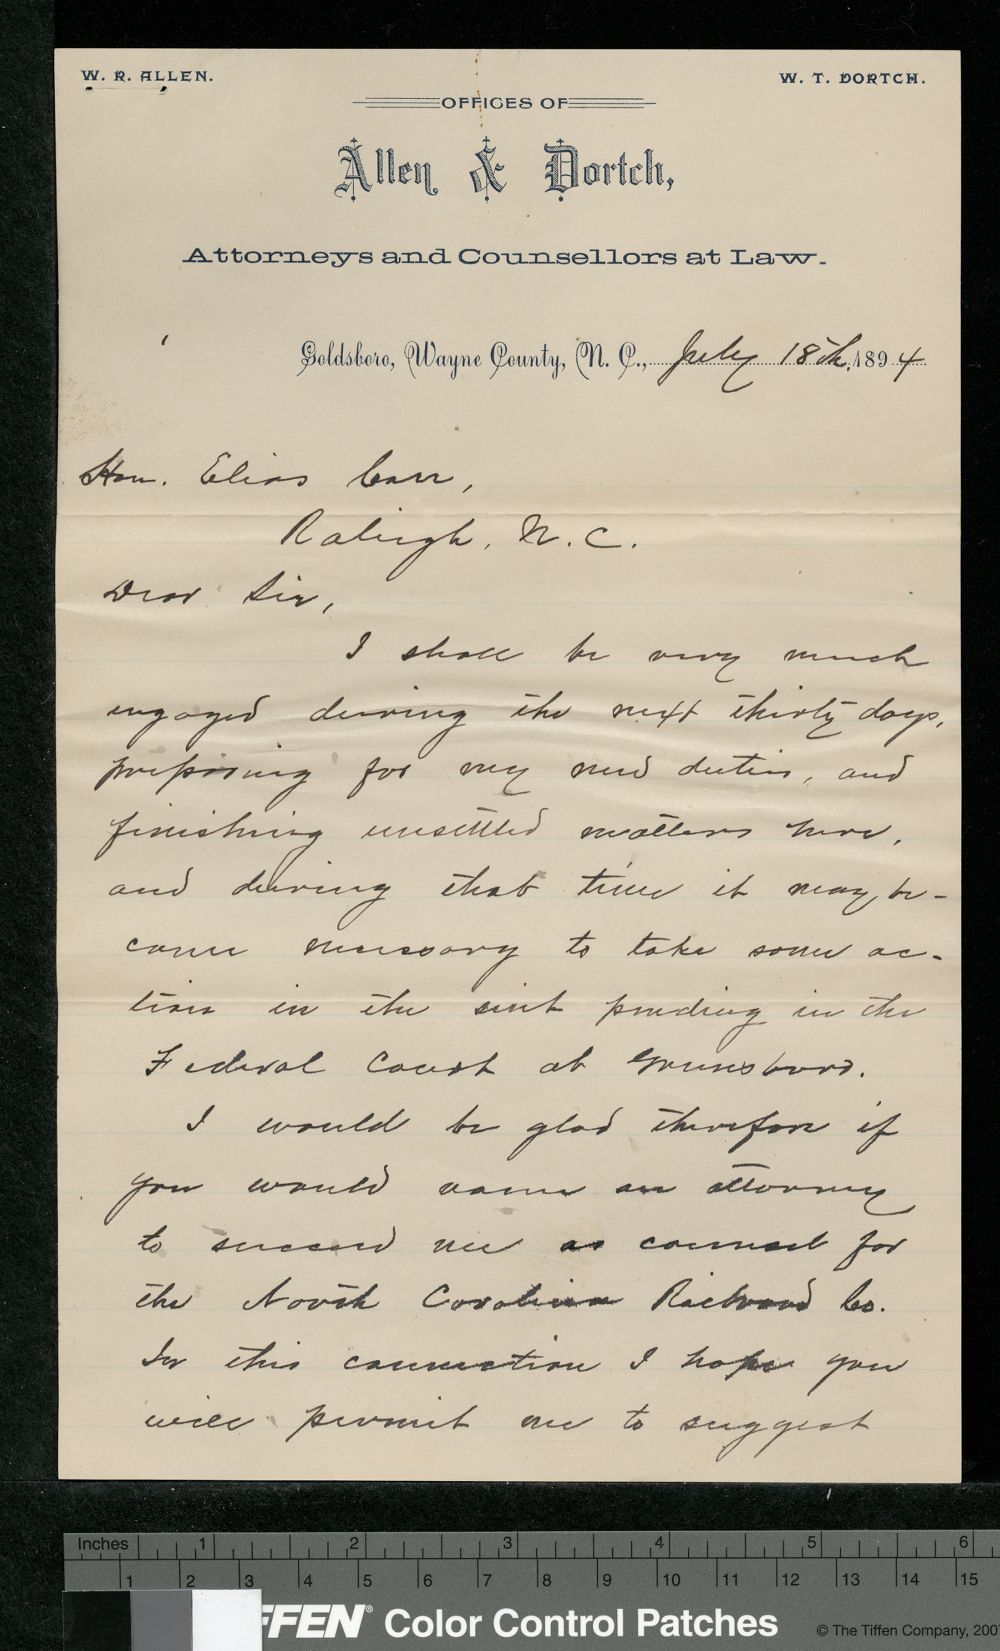 W. R. ALLEN.
W. T. DORTCH.
OFFICES OF
Allen & Dortch,
Attorneys and Counsellors at Law.
Goldsboro, Wayne County, N. C., July 18th, 1894
Hon. Elias Carr,
Raleigh, N. C.
Dear Sir,
I shall be very much
engaged during the next thirty days,
preparing for my new duties, and
finishing unsettled matters here,
and during that time it may be-
come necessary to take some ac-
tion in the suit pending in the
Federal Court at Greensboro.
I would be glad therefore if
you would name an attorney
to succeed me as counsel for
the North Carolina Railroad Co.
In this connection I hope you
will permit me to suggest
Inches 1 2 3 4 5 6
1 2 3 4 5 6 7 8 9 10 11 12 13 14 15
FFEN® Color Control Patches
© The Tiffen Company, 200